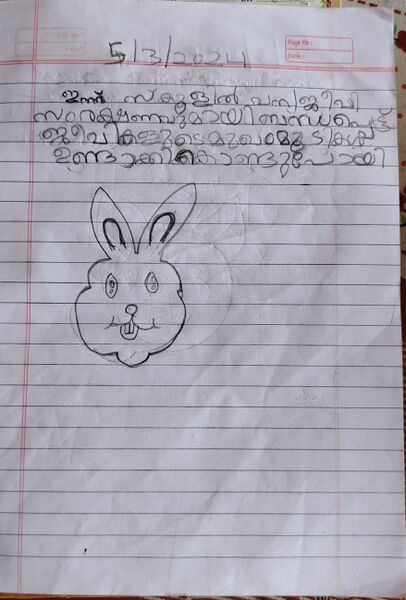 Page No :
Date :
5/3/2024
ഇന്ന് സ്കൂളിൽ വന്യജീവി
സംരക്ഷണവുമായി ബന്ധപ്പെട്ട്
ജീവികളുടെ മുഖംമൂടികൾ
ഉണ്ടാക്കികൊണ്ടുപോയി